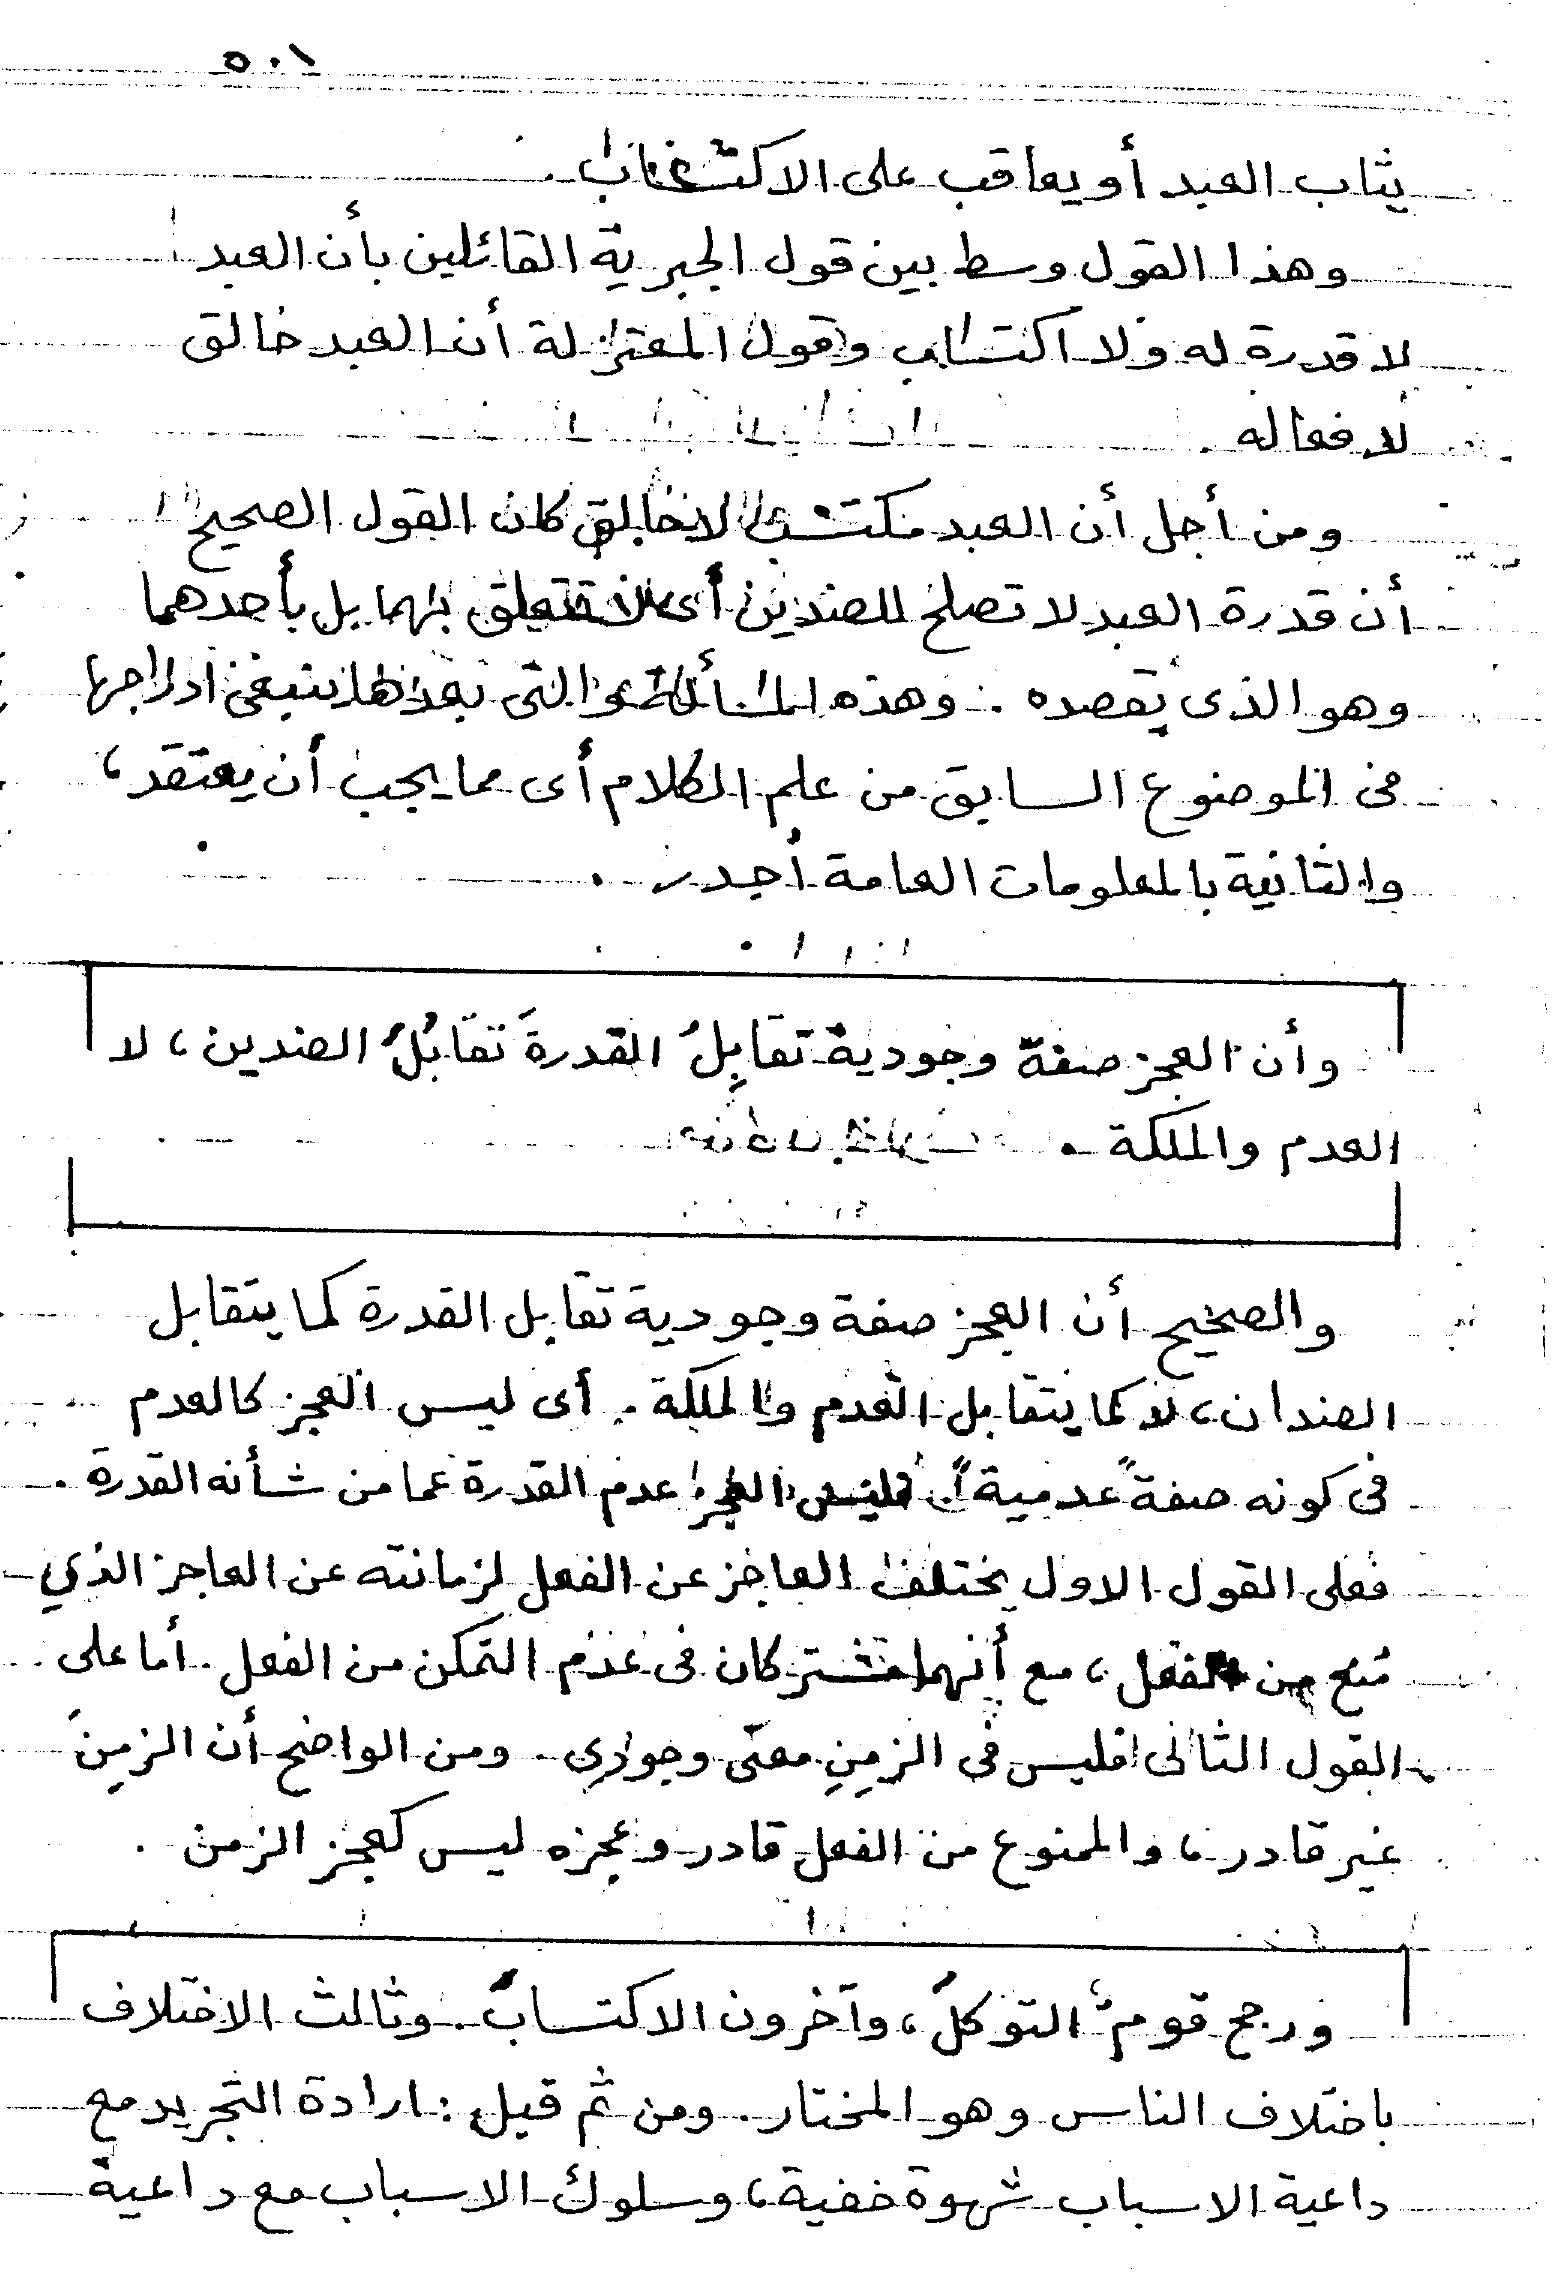 ٥٠١
يثاب العبد أو يعاقب على الاكتساب .
وهذا القول وسط بين قول الجبرية القائلين بأن العبد
لا قدرة له ولا اكتساب وقول المعتزلة أن العبد خالق
لأفعاله .
ومن أجل أن العبد مكتسب لا خالق كان القول الصحيح
أن قدرة العبد لا تصلح للضدين أى لا تتعلق بهما بل بأحدهما
وهو الذى يقصده . وهذه المسألة والتى بعدها ينبغى ادراجها
فى الموضوع السابق من علم الكلام أى مما يجب أن يعتقد ،
والثانية بالمعلومات العامة أجدر .
وأن العجز صفة وجودية تقابِلُ القدرةَ تقابُلَ الضدين ، لا
العدم والملكة .
والصحيح أن العجز صفة وجودية تقابل القدرة كما يتقابل
الضدان ، لا كما يتقابل العدم والملكة . أى ليس العجز كالعدم
فى كونه صفةً عدميةً . فليس العجز عدم القدرة عما من شأنه القدرة .
فعلى القول الاول يختلف العاجز عن الفعل لزمانته عن العاجز الذي
مُنع من الفعل ، مع أنهما مشتركان فى عدم التمكن من الفعل . أما على
القول الثانى فليس فى الزمِنِ معنى وجودي . ومن الواضح أن الزمِنَ
غير قادر ، والممنوع من الفعل قادر وعجزه ليس كعجز الزمن .
ورجح قومٌ التوكلَ ، وآخرون الاكتسابَ . وثالث الاختلاف
باختلاف الناس وهو المختار . ومن ثم قيل : ارادة التجريد مع
داعية الاسباب شهوة خفية ، وسلوك الاسباب مع داعية